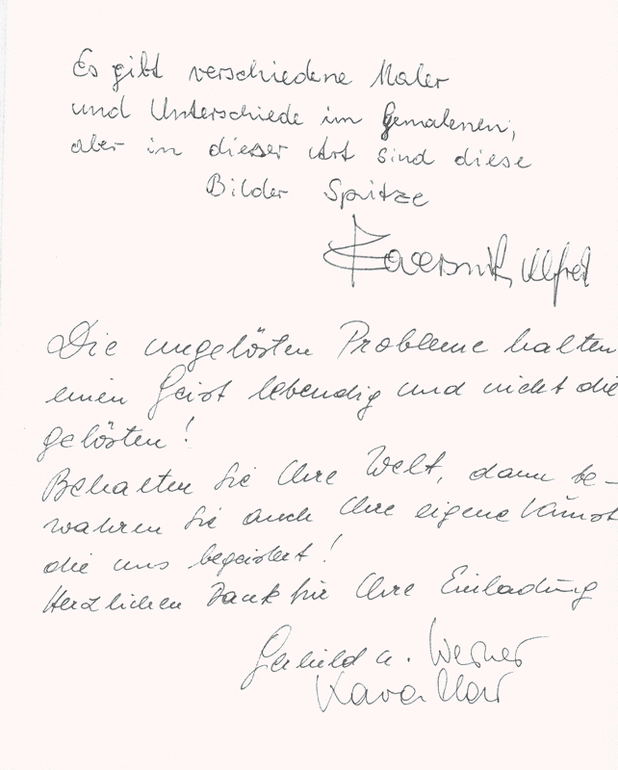 Es gibt verschiedene Maler
und Unterschiede im Gemalenen,
aber in dieser Art sind diese
Bilder Spitze
Alfred
Die ungelösten Probleme halten
einen Geist lebendig und nicht die
gelösten!
Behalten Sie Ihre Welt, dann be-
wahren Sie auch Ihre eigene Kunst
die uns begeistert!
Herzlichen Dank für Ihre Einladung
Gerhild u. Werner